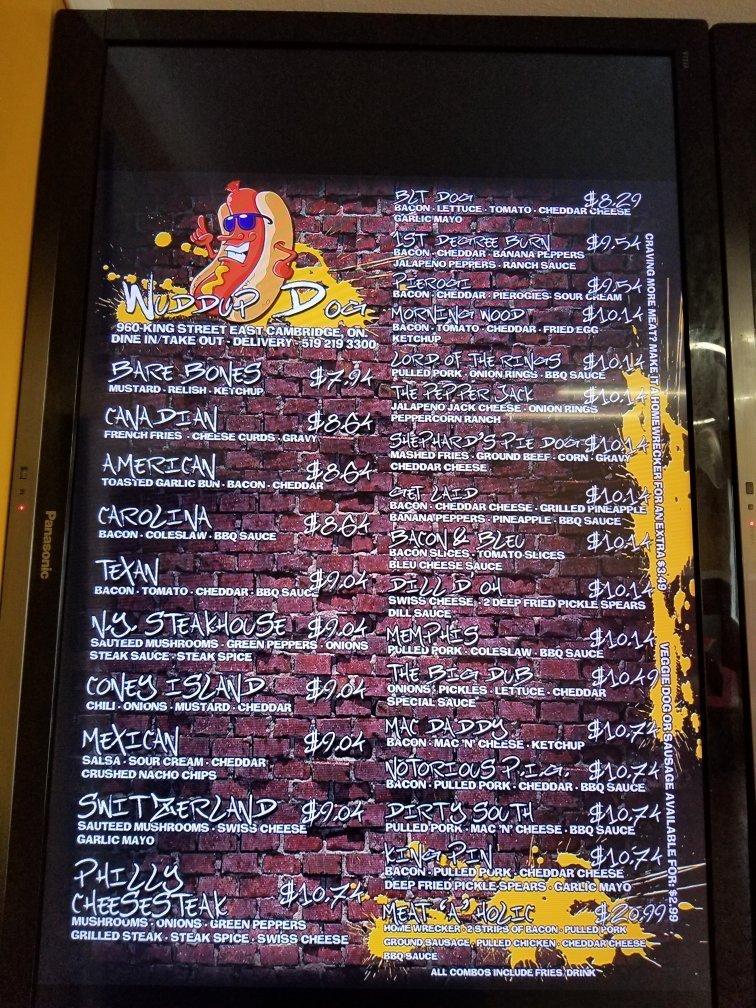 WUDDUP DOG
960-KING STREET EAST CAMBRIDGE, ON
DINE IN/TAKE OUT - DELIVERY - 519 219 3300
BARE BONES $7.94
MUSTARD · RELISH · KETCHUP
CANADIAN $8.64
FRENCH FRIES · CHEESE CURDS · GRAVY
AMERICAN $8.64
TOASTED GARLIC BUN · BACON · CHEDDAR
CAROLINA $8.64
BACON · COLESLAW · BBQ SAUCE
TEXAN $9.04
BACON · TOMATO · CHEDDAR · BBQ SAUCE
N.Y. STEAKHOUSE $9.04
SAUTEED MUSHROOMS · GREEN PEPPERS · ONIONS
STEAK SAUCE · STEAK SPICE
CONEY ISLAND $9.04
CHILI · ONIONS · MUSTARD · CHEDDAR
MEXICAN $9.04
SALSA · SOUR CREAM · CHEDDAR
CRUSHED NACHO CHIPS
SWITZERLAND $9.04
SAUTEED MUSHROOMS · SWISS CHEESE
GARLIC MAYO
PHILLY
CHEESESTEAK $10.74
MUSHROOMS · ONIONS · GREEN PEPPERS
GRILLED STEAK · STEAK SPICE · SWISS CHEESE
BLT DOG $8.29
BACON · LETTUCE · TOMATO · CHEDDAR CHEESE
GARLIC MAYO
1ST DEGREE BURN $9.54
BACON · CHEDDAR · BANANA PEPPERS
JALAPENO PEPPERS · RANCH SAUCE
PIEROGI $9.54
BACON · CHEDDAR · PIEROGIES · SOUR CREAM
MORNING WOOD $10.14
BACON · TOMATO · CHEDDAR · FRIED EGG
KETCHUP
LORD OF THE RINGS $10.14
PULLED PORK · ONION RINGS · BBQ SAUCE
THE PEPPER JACK $10.14
JALAPENO JACK CHEESE · ONION RINGS
PEPPERCORN RANCH
SHEPHARD'S PIE DOG $10.14
MASHED FRIES · GROUND BEEF · CORN · GRAVY
CHEDDAR CHEESE
GET LAID $10.14
BACON · CHEDDAR CHEESE · GRILLED PINEAPPLE
BANANA PEPPERS · PINEAPPLE · BBQ SAUCE
BACON & BLEU $10.14
BACON SLICES · TOMATO SLICES
BLEU CHEESE SAUCE
DILL D'OH $10.14
SWISS CHEESE · 2 DEEP FRIED PICKLE SPEARS
DILL SAUCE
MEMPHIS $10.14
PULLED PORK · COLESLAW · BBQ SAUCE
THE BIG DUB $10.49
ONIONS · PICKLES · LETTUCE · CHEDDAR
SPECIAL SAUCE
MAC DADDY $10.74
BACON · MAC 'N' CHEESE · KETCHUP
NOTORIOUS P.I.G. $10.74
BACON · PULLED PORK · CHEDDAR · BBQ SAUCE
DIRTY SOUTH $10.74
PULLED PORK · MAC 'N' CHEESE · BBQ SAUCE
KING PIN $10.74
BACON · PULLED PORK · CHEDDAR CHEESE
DEEP FRIED PICKLE SPEARS · GARLIC MAYO
MEAT 'A' HOLIC $20.99
HOME WRECKER · 2 STRIPS OF BACON · PULLED PORK
GROUND SAUSAGE, PULLED CHICKEN · CHEDDAR CHEESE
BBQ SAUCE
ALL COMBOS INCLUDE FRIES, DRINK
CRAVING MORE MEAT? MAKE IT A HOMEWRECKER FOR AN EXTRA $3.49
VEGGIE DOG OR SAUSAGE AVAILABLE FOR: $2.98
Panasonic